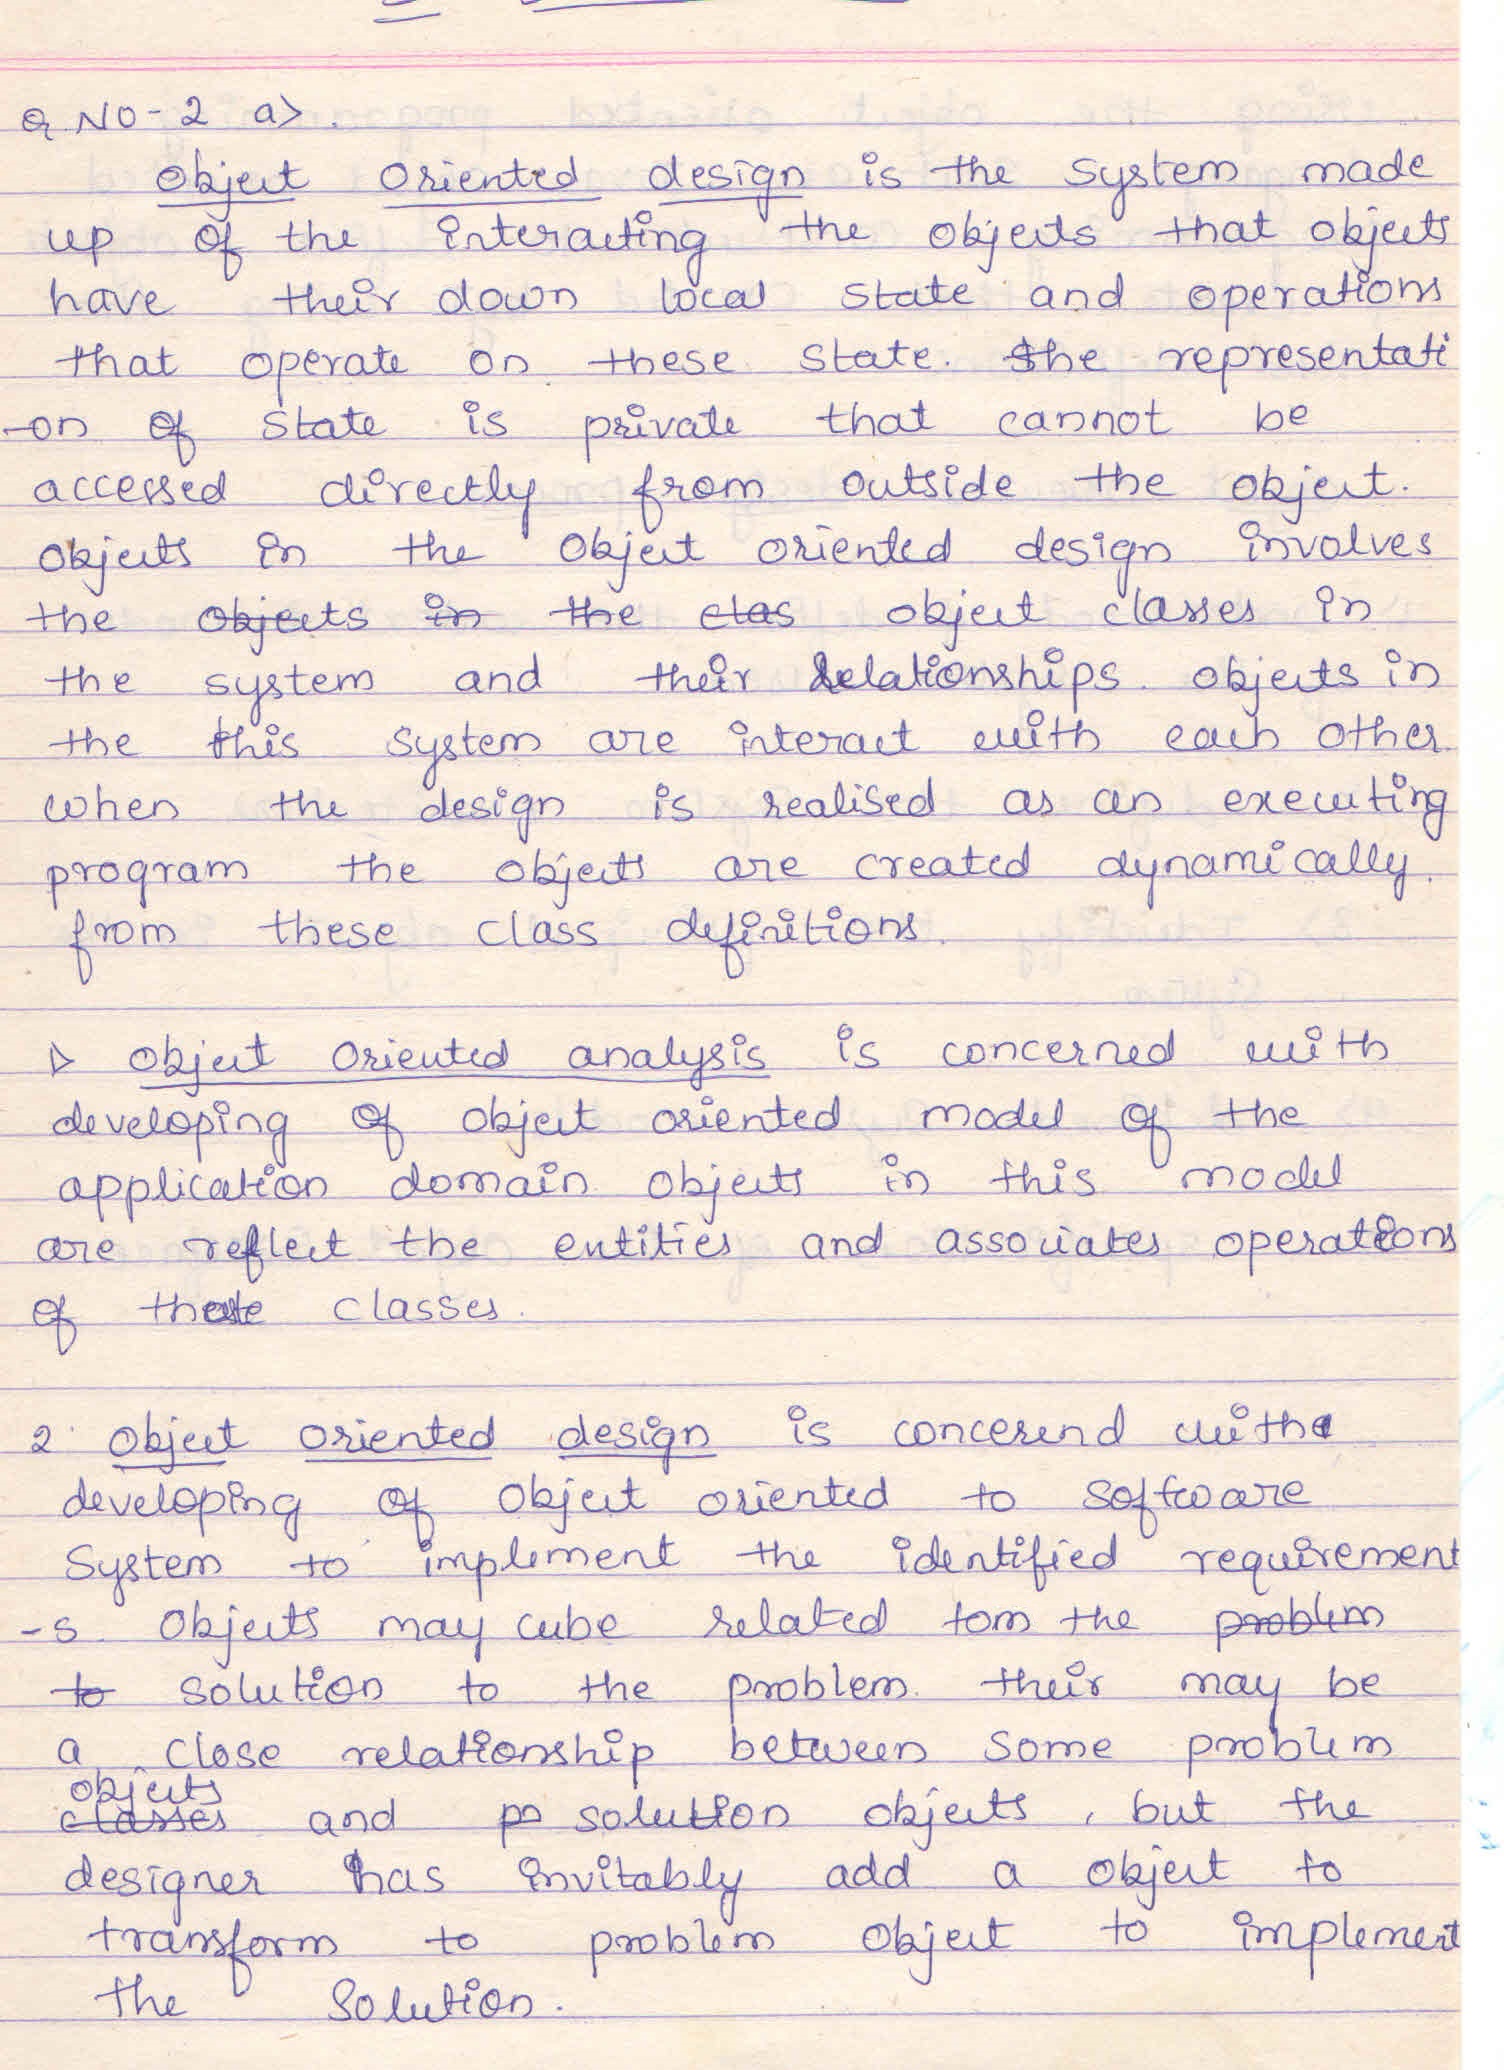 Q NO-2 a>.
Object oriented design is the system made
up of the interacting the objects that objects
have their down local state and operations
that operate on these state. The representati
-on of state is private that cannot be
accessed directly from outside the object.
Objects in the object oriented design involves
the objects in the clas object classes in
the system and their relationships. objects in
the this system are interact with each other.
when the design is realised as an executing
program the objects are created dynamically.
from these class definitions.
1> object oriented analysis is concerned with
developing of object oriented model of the
application domain. objects in this model
are reflect the entities and associates operations
of these classes.
2. object oriented design is concerend with
developing of object oriented to software
system to implement the identified requirement
-s. Objects may be related the problem
to solution to the problem. their may be
a close relationship between some problem
objects
classes and po solution objects, but the
designer has invitably add a object to
transform to problem object to implement
the solution.